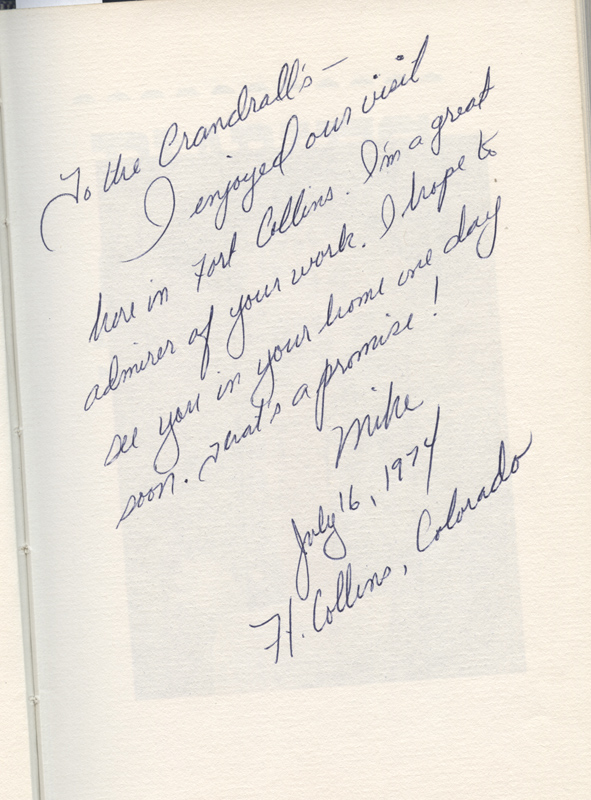 To the Crandrall's —
I enjoyed our visit
here in Fort Collins. I'm a great
admirer of your work. I hope to
see you in your home one day
soon. That's a promise!
Mike
July 16, 1974
Ft. Collins, Colorado